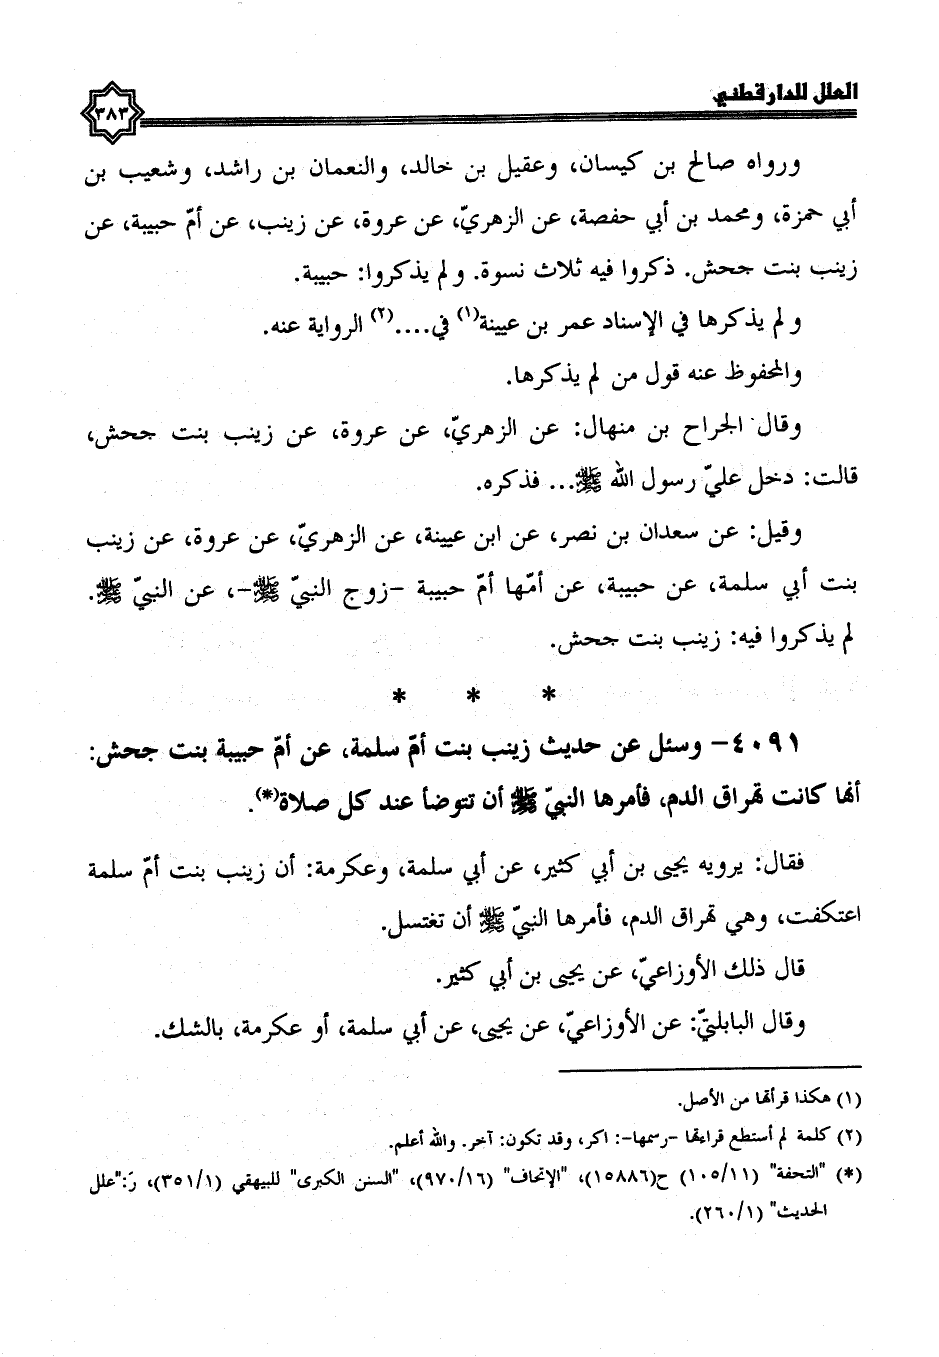 العلل للدارقطني
٣٨٣
ورواه صالح بن كيسان، وعقيل بن خالد، والنعمان بن راشد، وشعيب بن
أبي حمزة، ومحمد بن أبي حفصة، عن الزهريّ، عن عروة، عن زينب، عن أمّ حبيبة، عن
زينب بنت جحش. ذكروا فيه ثلاث نسوة. ولم يذكروا: حبيبة.
ولم يذكرها في الإسناد عمر بن عيينة(١) في....(٢) الرواية عنه.
والمحفوظ عنه قول من لم يذكرها.
وقال الجراح بن منهال: عن الزهريّ، عن عروة، عن زينب بنت جحش،
قالت: دخل عليّ رسول الله ﷺ... فذكره.
وقيل: عن سعدان بن نصر، عن ابن عيينة، عن الزهريّ، عن عروة، عن زينب
بنت أبي سلمة، عن حبيبة، عن أمّها أمّ حبيبة -زوج النبيّ ﷺ-، عن النبيّ ﷺ.
لم يذكروا فيه: زينب بنت جحش.
* * *
٤٠٩١- وسئل عن حديث زينب بنت أمّ سلمة، عن أمّ حبيبة بنت جحش:
أنها كانت تهراق الدم، فأمرها النبيّ ﷺ أن تتوضأ عند كل صلاة(*).
فقال: يرويه يحيى بن أبي كثير، عن أبي سلمة، وعكرمة: أن زينب بنت أمّ سلمة
اعتكفت، وهي تهراق الدم، فأمرها النبيّ ﷺ أن تغتسل.
قال ذلك الأوزاعيّ، عن يحيى بن أبي كثير.
وقال البابلتيّ: عن الأوزاعيّ، عن يحيى، عن أبي سلمة، أو عكرمة، بالشك.
(١) هكذا قرأتها من الأصل.
(٢) كلمة لم أستطع قراءتها -رسمها-: اكر، وقد تكون: آخر. والله أعلم.
(*) "التحفة" (١٠٥/١١) ح(١٥٨٨٦)، "الإتحاف" (٩٧٠/١٦)، "السنن الكبرى" للبيهقي (٣٥١/١)، رَ:"علل
الحديث" (٢٦٠/١).